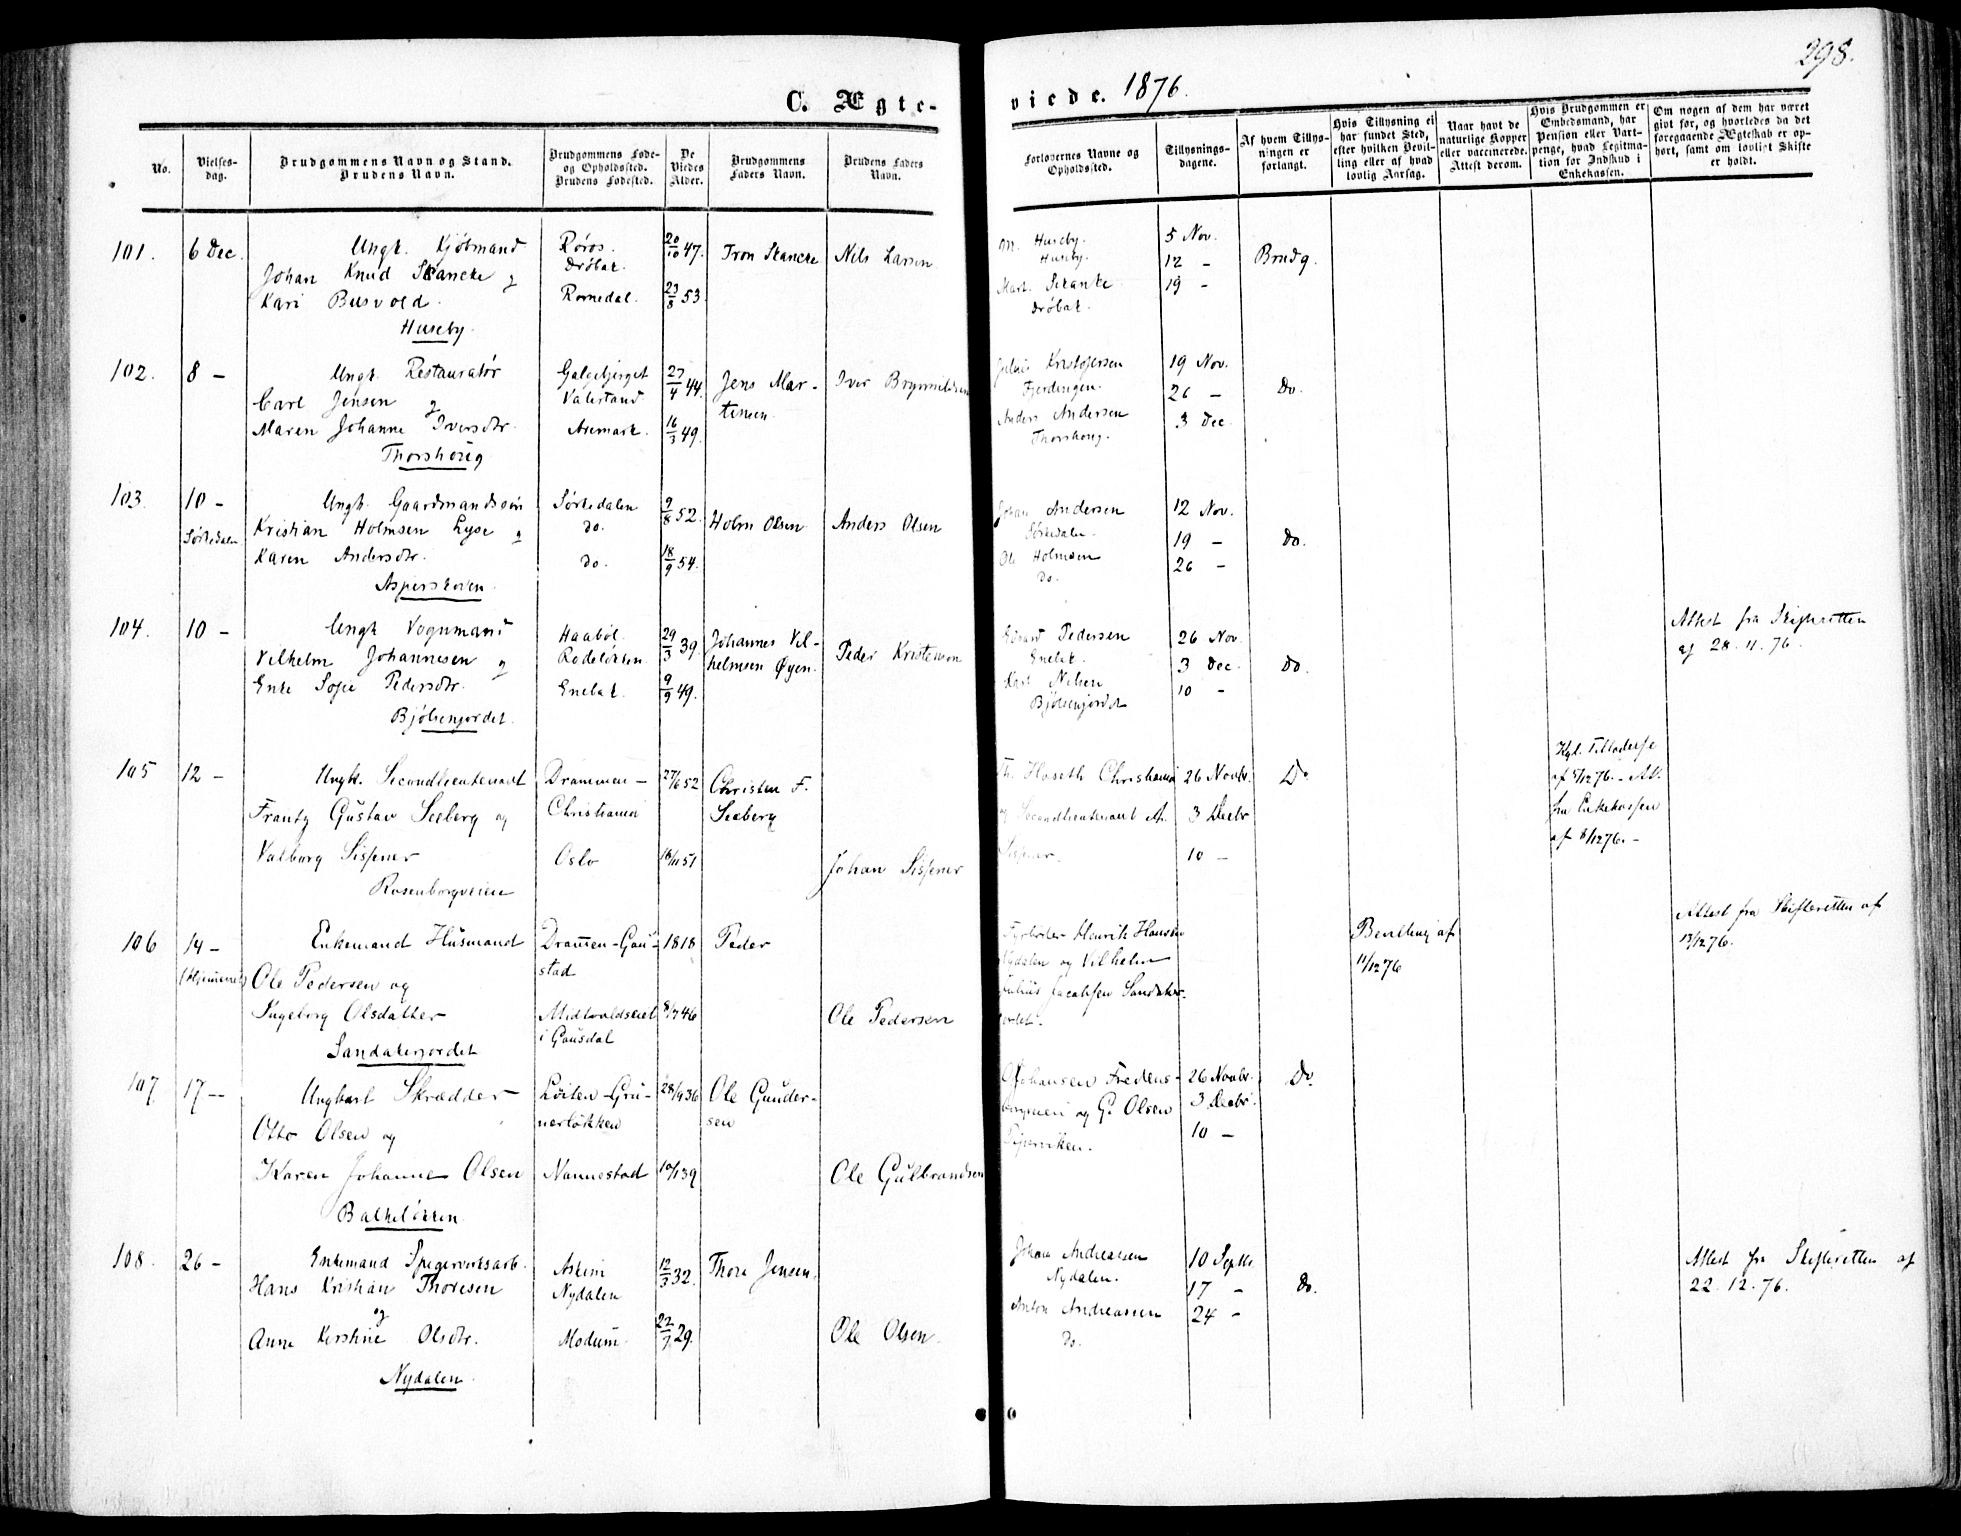 298.
C. Ægte-
viede. 1876.
No.
Vielses-
dag.
Brudgommens Navn og Stand.
Brudens Navn.
Brudgommens Føde-
og Opholdssted.
Brudens Fødested.
De
Viedes
Alder.
Brudgommens
Faders Navn.
Brudens Faders
Navn.
Forlovernes Navne og
Opholdssted.
Tillysnings-
dagene.
Af hvem Tillys-
ningen er
forlangt.
Hvis Tillysning ei
har fundet Sted,
efter hvilken Bevil-
ling eller af hvad
lovlig Aarsag.
Naar havt de
naturlige Kopper
eller vaccinerede.
Attest derom.
Hvis Brudgommen er
Embedsmand, har
Pension eller Vart-
penge, hvad Legitma-
tion for Indskud i
Enkekassen.
Om nogen af dem har været
givt før, og hvorledes da det
foregaaende Ægteskab er op-
hørt, samt om lovligt Skifte
er holdt.
101.
6 Dec.
Ungk. Kjøbmand
Johan Knud Skancke og
Kari Busvold.
Huseby.
Røros.
Drøbak.
Romedal.
20/10 47.
23/8 53.
Tron Skancke
Nils Larsen
M. Huseby.
Huseby.
Mart. Skanke
Drøbak.
5 Nov.
12 -
19 -
Brudg.
102.
8 -
Ungk. Restauratør
Carl Jensen
og
Maren Johanne Iversdtr.
Thorshoug
Galgebjerget
Valestrand
Aremark.
27/4 44.
16/3 49.
Jens Mar-
tinsen
Iver Brynnildsen
Kristofersen
Fjerdingen.
Anders Andersen
Thorshoug.
19 Nov.
26 -
3 Dec.
Do.
103.
10 -
Sørkedalen
Ungk. Gaardmandssøn
Kristian Holmsen Lyse og
Karen Andersdtr.
Asperskoven.
Sørkedalen
do.
do.
9/8 52.
18/9 54.
Holm Olsen
Anders Olsen
Johan Andersen
Sørkedalen.
Ole Holmsen
do.
12 Nov.
19 -
26 -
Do.
104.
10 -
Ungk Vognmand
Vilhelm Johannesen og
Enke Sofie Pedersdtr.
Bjølsenjordet.
Haabøl.
Rodeløkken.
Enebak.
29/3 39.
9/9 49.
Johannes Vil-
helmsen Øyen.
Peder Kristenson
Edvard Pedersen
Enebak.
Karl Nilsen
Bjølsenjordet
26 Nov.
3 Dec.
10 -
Do.
Attest fra Skifteretten
af 28.11.76.
105
12 -
Ungk. Secondlieutenant
Frantz Gustav Seeberg og
Valborg Sissener
Rosenborgveien
Drammen -
Christiania
Oslo
27/6 52
16/11 51
Christen F.
Seeberg
Johan Sissener
Th. Haseth Christiania
og Secondlieutenant A.
Sissener.
26 Novbr.
3 Decbr
10 -
Do
Kgl. Tilladelse
af 5/12 76. - Att.
fra Enkekassen
af 8/12 76. -
106
14 -
(Hjemme)
Enkemand Husmand
Ole Pedersen og
Ingeborg Olsdatter
Sandakerjordet
Dramen - Gau-
stad
i Gausdal
1818
8/7 46
Peder
Ole Pedersen
Fyrbøder Henrik Hansen
Nydalen og Vilhelm
Julius Jacobsen Sandaker-
jordet.
Bevilling af
11/12 76
Attest fra Skifteretten af
13/12 76.
107
17 -
Ungkarl Skrædder
Otto Olsen og
Karen Johanne Olsen
Balkeløkken
Løiten - Grü-
nerløkken
Nannestad
28/9 36
10/1 39
Ole Gunder-
sen
Ole Gulbrandsen
O Johansen Fredens-
borgveien og G. Olsen
Pipervi​ken.
26 Novbr.
3 Decbr.
10 -
Do
108.
26 -
Enkemand Spigerverksarb.
Hans Kristian Thoresen
og
Anne Kirstine Olsdtr.
Nydalen
Askim
Nydalen
Modum.
12/3 32.
22/7 29.
Thore Jensen.
Ole Olsen.
Johan Andreassen
Nydalen.
Anton Andreassen
do.
10 Septbr
17 -
24 -
Do.
Attest fra Skifteretten af
22.12.76.